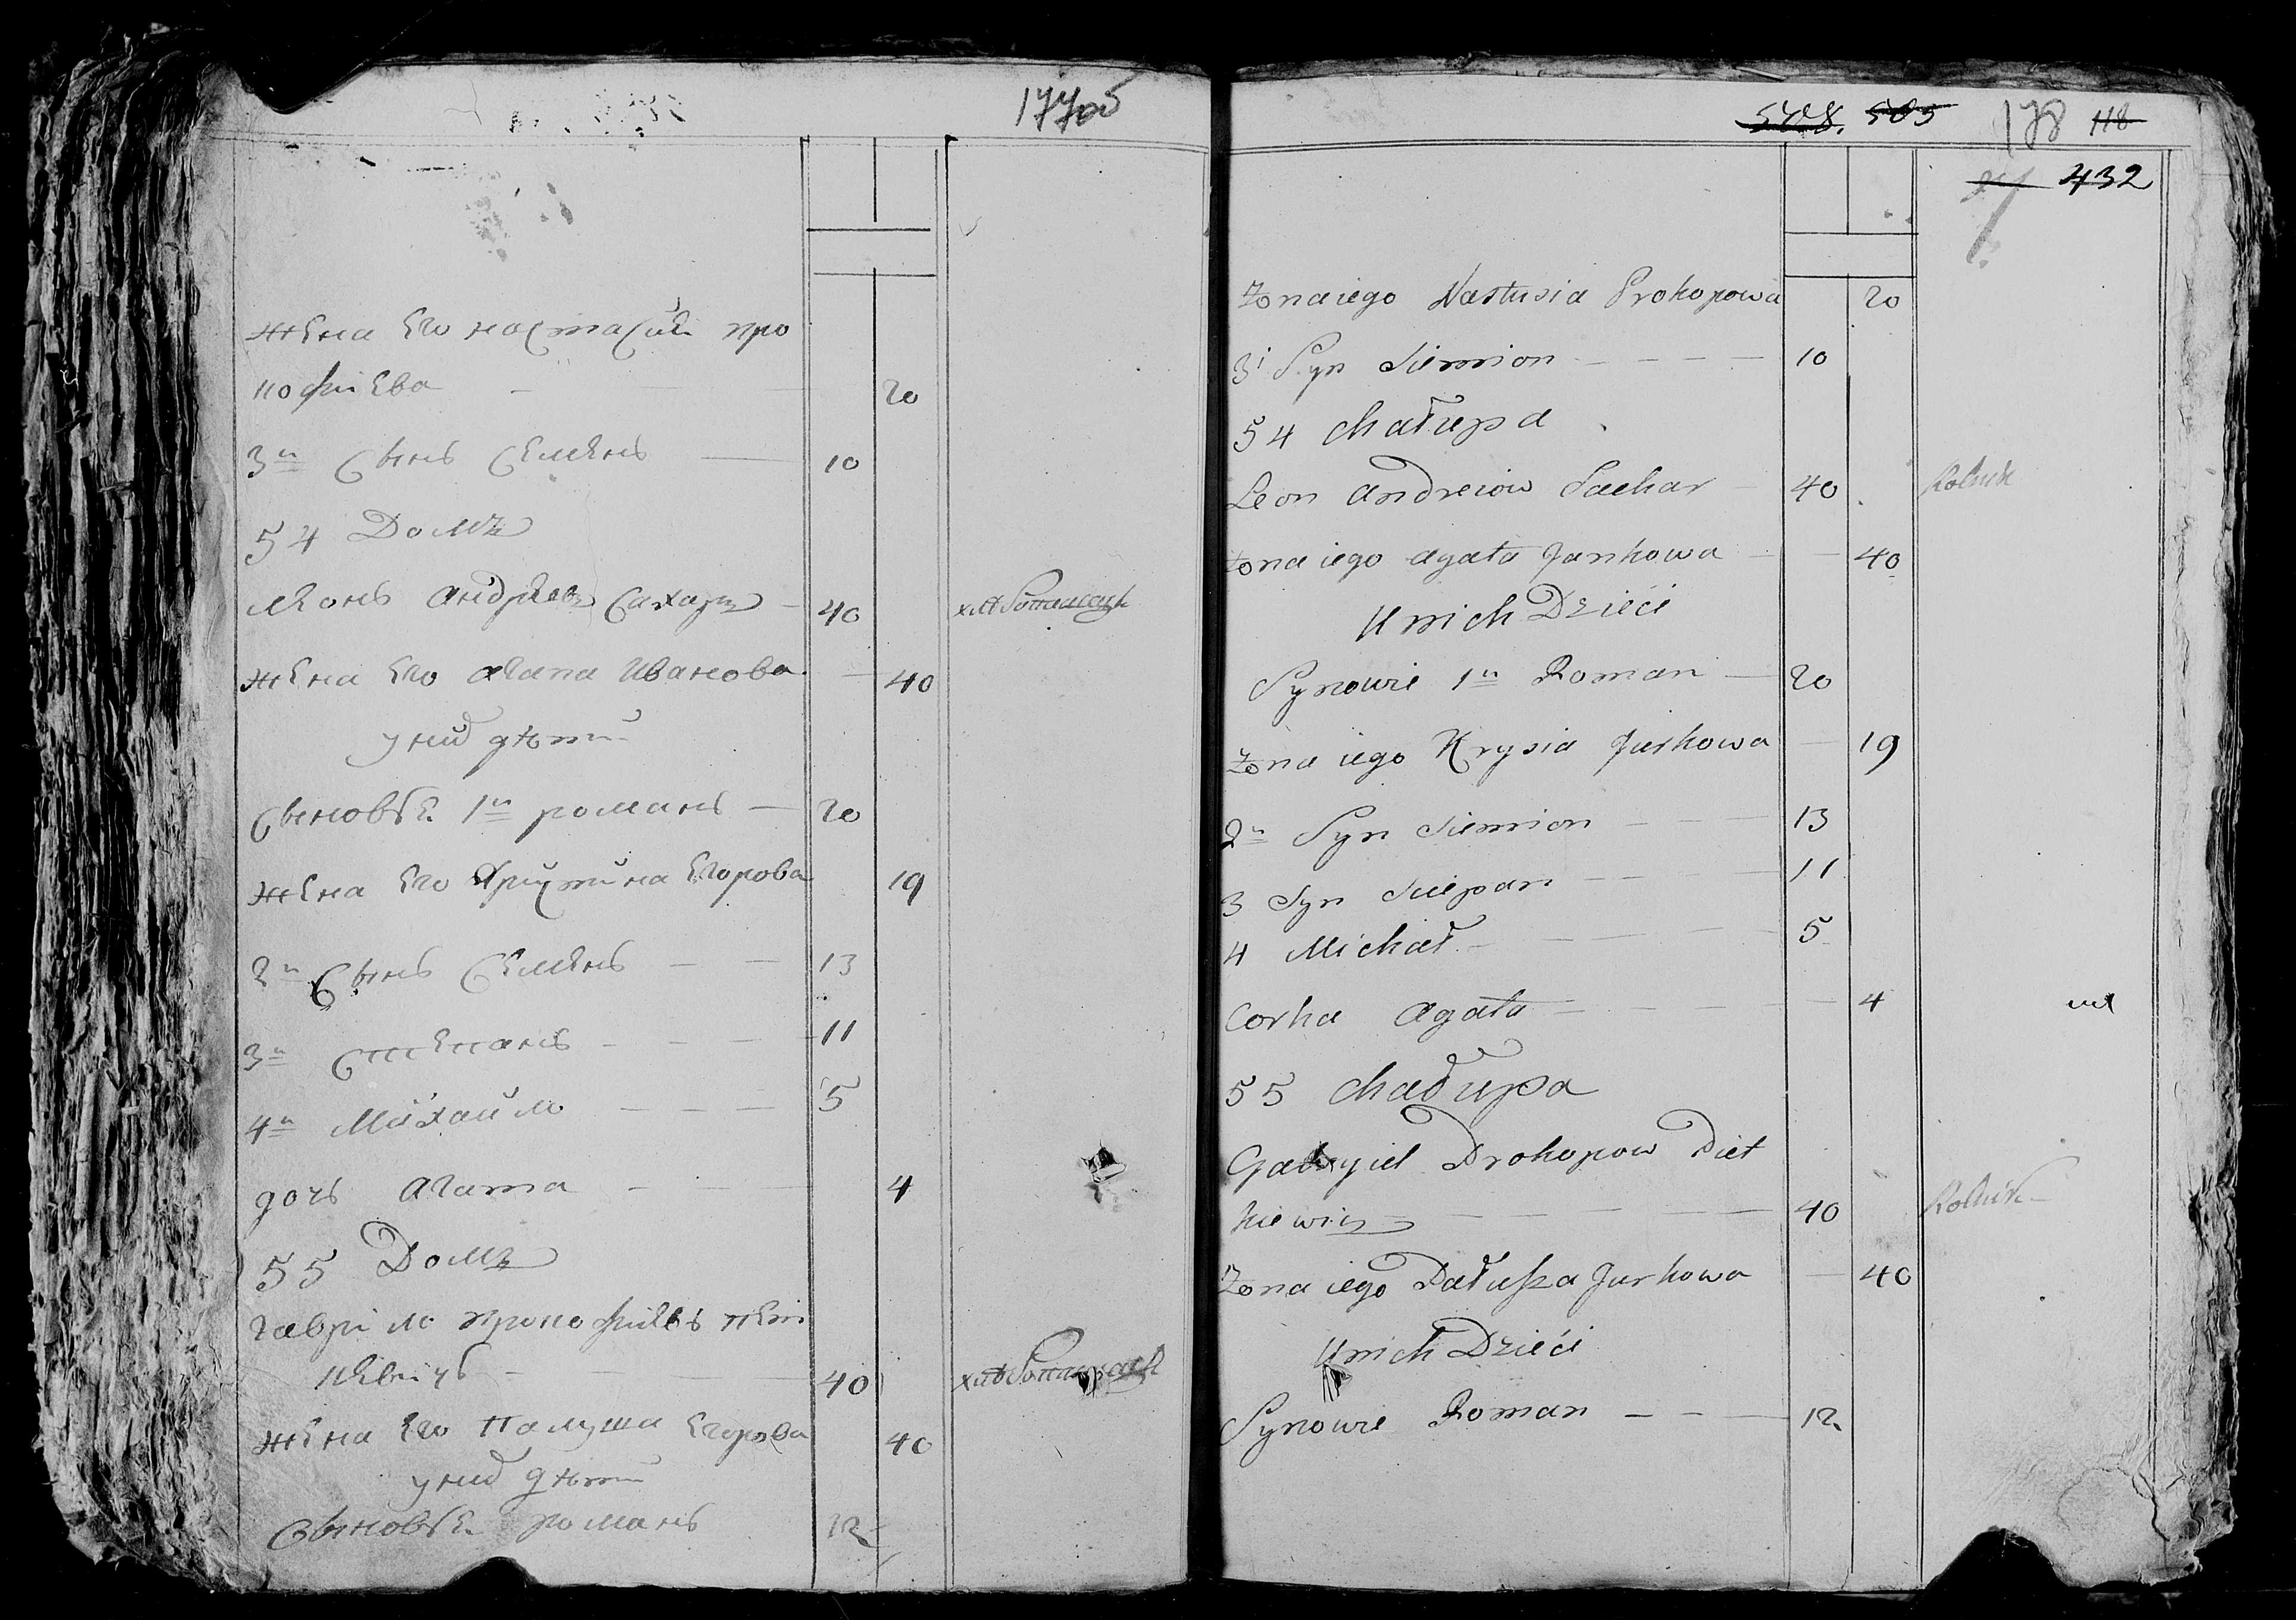 177об
жена его настасия про
кофиева — 20
3й сынъ семенъ — 10
54 Домъ
леонъ андреевъ сахаръ — 40 хлебопашецъ
жена его агапа иванова — 40
у них дѣти
сыновье 1й романъ — 20
жена его христина егорова 19
2й сынъ семенъ — — 13
3й степанъ — — — 11
4й михайло — — — 5
дочь агата — — 4
55 Домъ
гаврило прокофиевъ пет
кевичъ — — 40 хлебопашецъ
жена его палуша егорова 40
у них дѣти
сыновье романъ 12
508. 505 178 118
432
żona iego Nastusia Prokopowa 20
3i Syn Siemion — — — — 10
54 Chałupa
Leon Andreiow Sachar — 40 Rolnik
żona iego agata Jankowa — — 40
U nich Dzieći
Synowie 1й Roman — 20
żona iego Krysia Jurkowa — 19
2й Syn Siemion — — — 13
3 Syn Sciepan — — — 11
4 Michał — — — — 5
Corka Agata — — — — 4
55 Chałupa
Gabryiel Prokopow Piet
kiewicz — — — — — 40 Rolnik
Zona iego Pałusza Jurkowa — 40
U nich Dzieći
Synowie Roman — — — 12